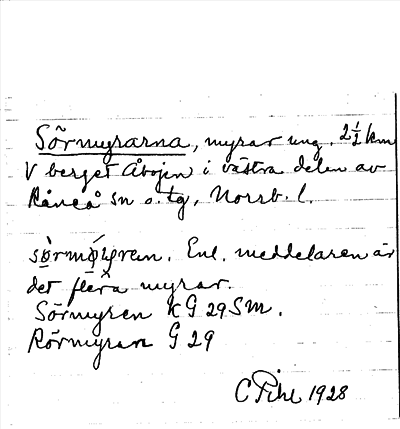 Sörmyrarna, myrar ung. 2½ km
V berget Åbojen i västra delen av
Råneå sn o. tg, Norrb. l.
Enl. meddelaren är
det flera myrar.
Sörmyren k G 29 Sm.
Rörmyran G 29
C Pihl 1928